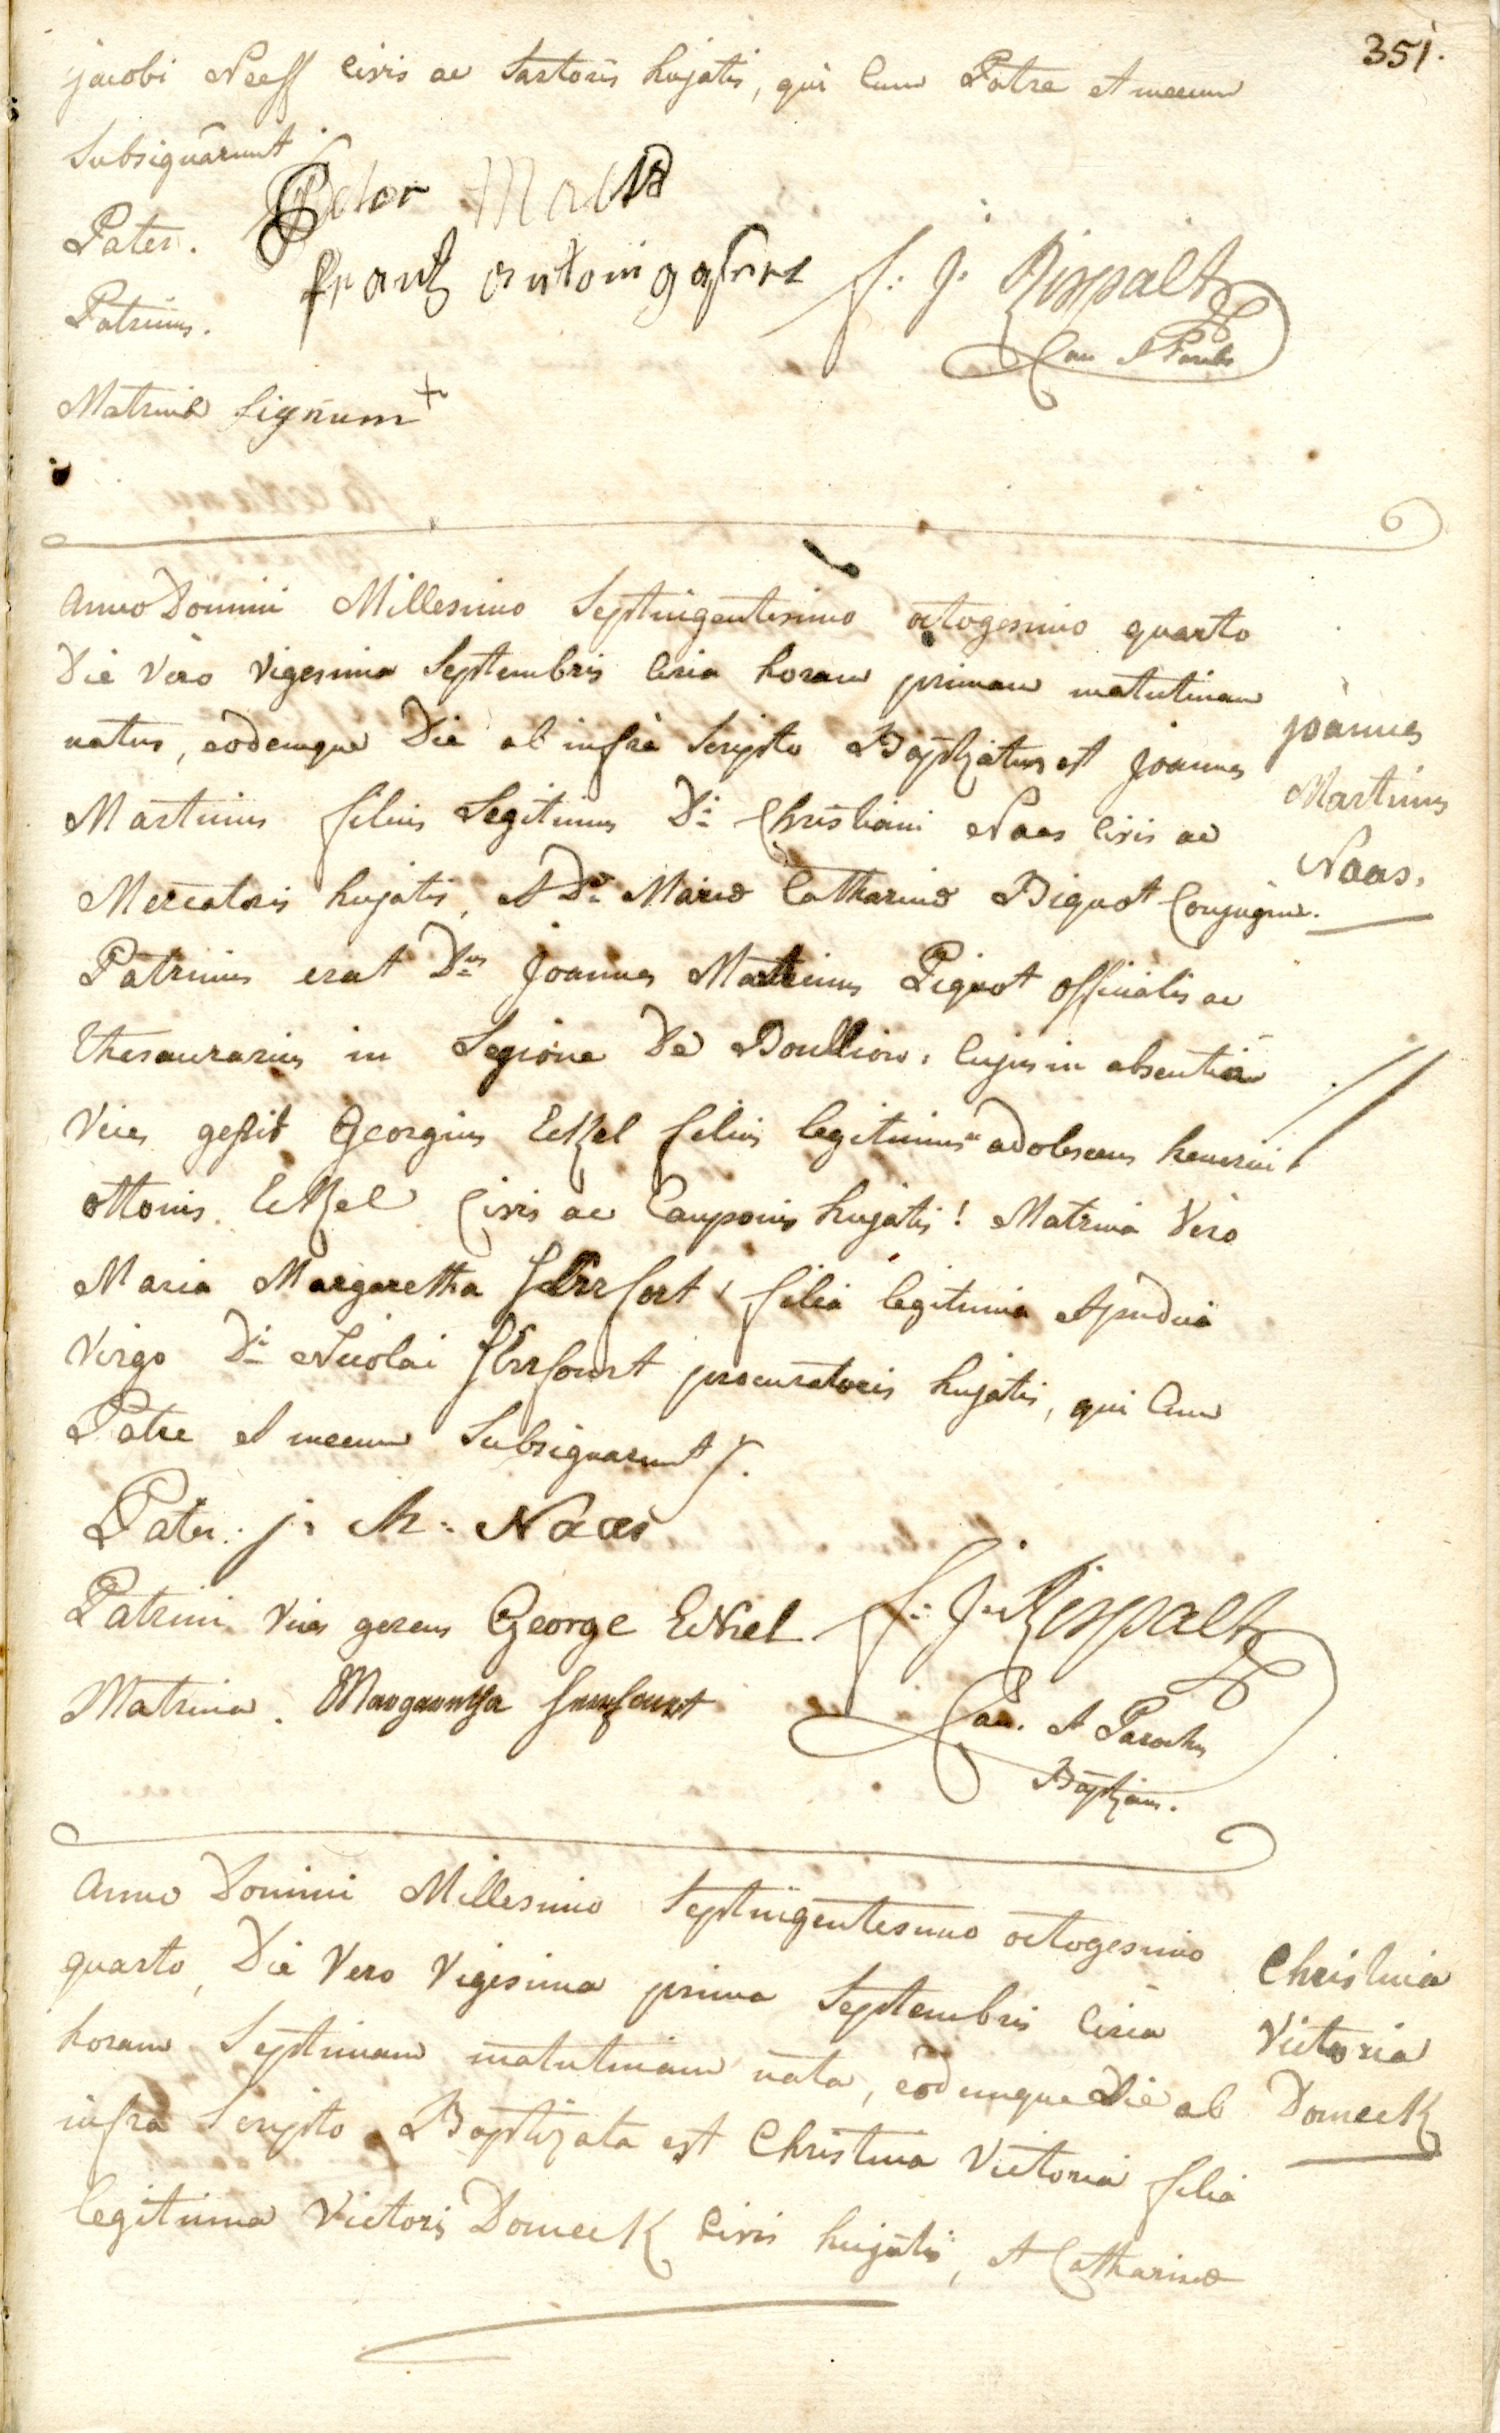 351.
jacobi Neeff civis ac Sartoris hujatis, qui cum Patre et mecum
Subsignarunt
Pater. Peter
Patrinus. frantz antoni
F: J: Rispalt
Can et Parochs
Matrinæ signum +
Anno Domini Millesimo Septingentesimo octogesimo quarto
Die Vero Vigesima Septembris circa horam primam matutinam
natus, eodemque Die ab infra Scripto Baptizatus est Joannes
Martinus filius Legitimus Di Christiani Naas civis ac
Mercatoris hujatis, et Dæ Mariæ Catharinæ Biquot Conjugum.
Joannes
Martinus
Naas.
Patrinus erat Dnus Joannes Martinus Piquot officialis ac
Thesaurarius in Legione De Boullion, cujus in absentiâ
Vices gessit Georgius Eckel filius legitimus adolescens
ottonis Eckel Civis ac Cauponis hujatis! Matrina Vero
Maria Margaretha filia legitima et pudica
Virgo Di Nicolai procuratoris hujatis, qui Cum
Patre et mecum Subsignarunt.
Pater: j: Ch: Naas
Patrini Vices gerens George Eckel
Matrina. Margaretha
F: J: Rispalt
Can. et Parochus
Baptizans.
Anno Domini Millesimo Septingentesimo octogesimo
quarto, Die Vero Vigesima prima Septembris circa
horam Septimam matutinam nata, eodemque Die ab
infra Scripto Baptizata est Christina Victoria filia
legitima Victoris Domeck civis hujatis, et Catharinæ
Christina
Victoria
Domeck